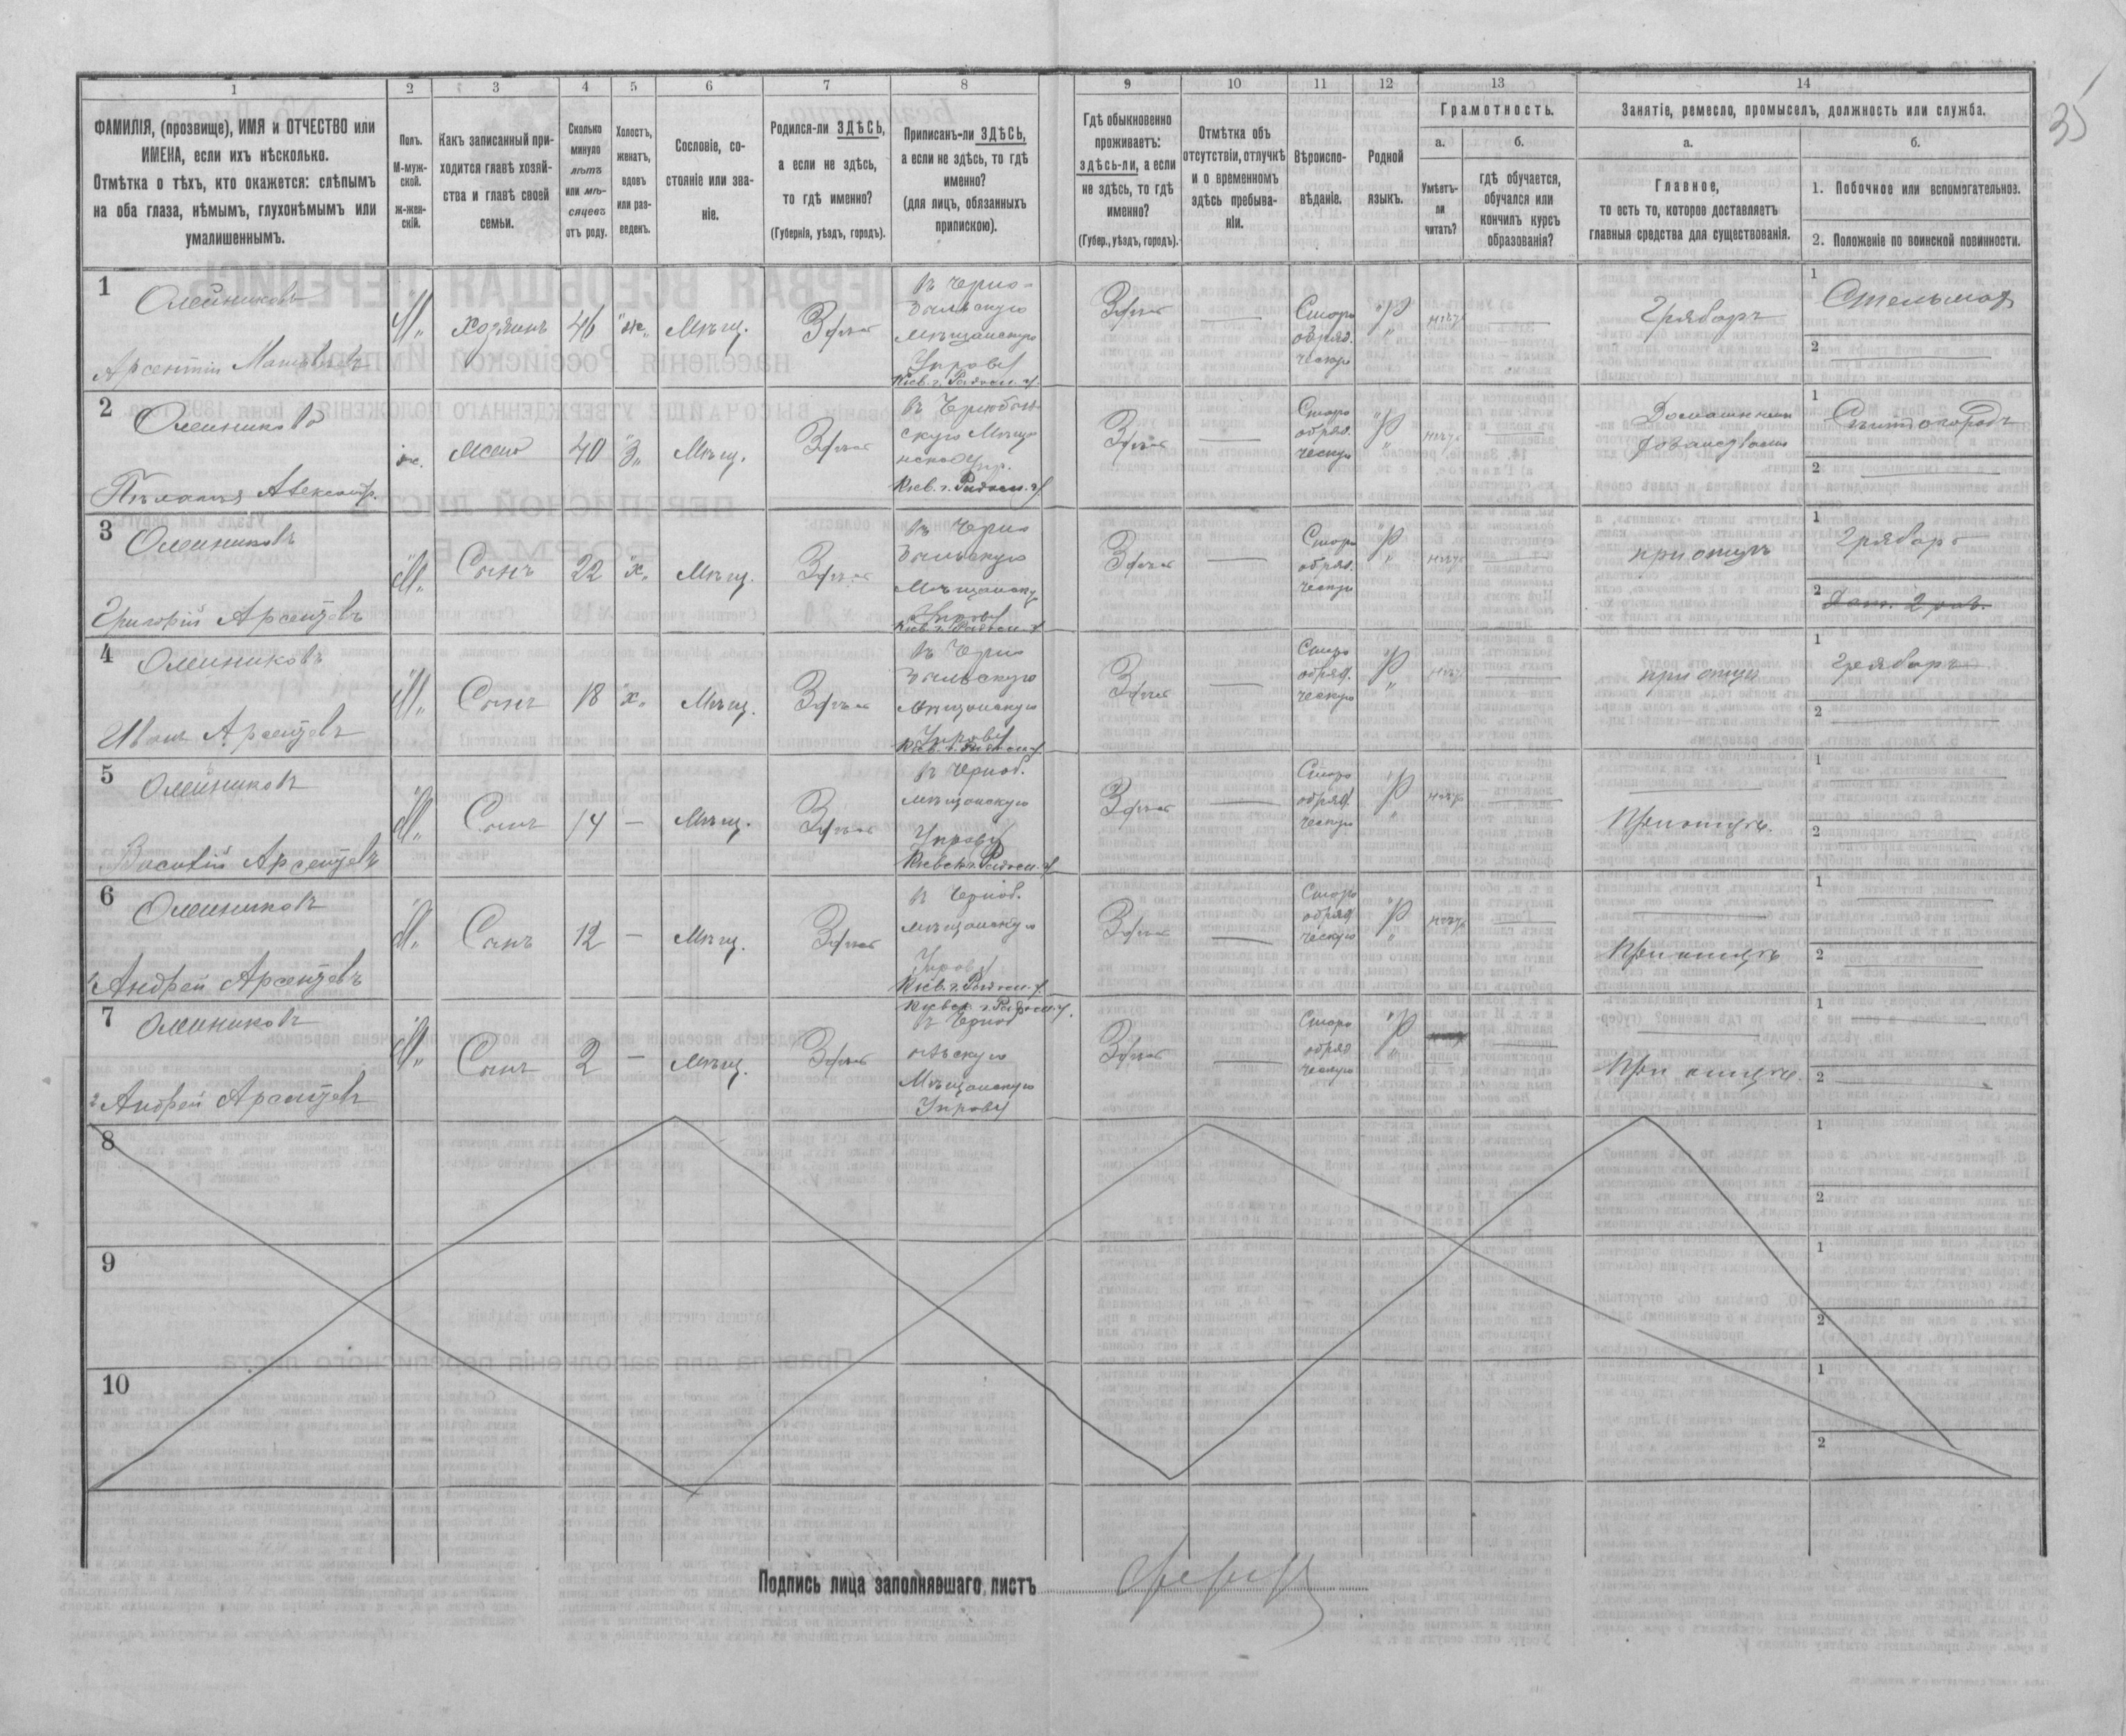 35
1
2
3
4
5
6
7
8
9
10
11
12
13
14
ФАМИЛІЯ, (прозвище), ИМЯ и ОТЧЕСТВО или
ИМЕНА, если ихъ нѣсколько.
Отмѣтка о тѣхъ, кто окажется: слѣпымъ
на оба глаза, нѣмымъ, глухонѣмымъ или
умалишеннымъ.
Полъ.
М-муж-
ской.
Ж-жен-
скій.
Какъ записанный при-
ходится главѣ хозяй-
ства и главѣ своей
семьи.
Сколько
минуло
лѣтъ
или мѣ-
сяцевъ
отъ роду.
Холостъ,
женатъ,
вдовъ
или раз-
веденъ.
Сословіе, со-
стояніе или зва-
ніе.
Родился-ли ЗДѢСЬ,
а если не здѣсь,
то гдѣ именно?
(Губернія, уѣздъ, городъ).
Приписанъ-ли ЗДѢСЬ,
а если не здѣсь, то гдѣ
именно?
(для лицъ, обязанныхъ
припискою).
Гдѣ обыкновенно
проживаетъ:
здѣсь-ли, а если
не здѣсь, то гдѣ
именно?
(Губер., уѣздъ, городъ).
Отмѣтка объ
отсутствіи, отлучкѣ
и о временномъ
здѣсь пребыва-
ніи.
Вѣроиспо-
вѣданіе.
Родной
языкъ.
Грамотность.
а.
Умѣетъ-
ли
читать?
б.
гдѣ обучается,
обучался или
кончилъ курсъ
образованія?
Занятіе, ремесло, промыселъ, должность или служба.
а.
Главное,
то есть то, которое доставляетъ
главныя средства для существованія.
б.
1. Побочное или вспомогательное.
2. Положеніе по воинской повинности.
1
Олейниковъ
Арсентій
М
хозяинъ
46
ж
Мѣщ.
Здѣсь
Въ Черно-
быльскую
мѣщанскую
Управу
Кіев. г. Радом. у.
Здѣсь
—
Старо
обряд.
ческую
Р
нѣтъ
—
Грабарь
1
Стельмах
2
—
2
Олейникова
Пелагея Александр.
ж.
жена
40
З
Мѣщ.
Здѣсь
Въ Чернобыль-
скую Мѣща
нск. Упр.
Кіев. г. Радом. у.
Здѣсь
—
Старо
обряд.
ческую
Р
нѣтъ
—
Домашнимъ
хозяйство
1
2
—
3
Олейниковъ
Григорій Арсентіевъ
М
Сынъ
22
х
Мѣщ.
Здѣсь
Въ Черно
быльскую
Мѣщанску
Управу
Кіев. г. Радом. у.
Здѣсь
—
Старо
обряд.
ческую
Р
нѣтъ
—
при отцѣ
1
Грабарь
2
4
Олейниковъ
Иванъ Арсентіевъ
М
Сынъ
18
х
Мѣщ.
Здѣсь
Въ Черно
быльскую
Мѣщанскую
Управу
Кіев. г. Радом. у.
Здѣсь
—
Старо
обряд.
ческую
Р
нѣтъ
—
при отцѣ
1
Грабарь
2
—
5
Олейниковъ
Василій Арсентіевъ
М
Сынъ
14
—
Мѣщ.
Здѣсь
Въ Черноб.
мѣщанскую
Управу
Кіевск. г. Радом. у.
Здѣсь
—
Старо
обряд.
ческую
Р
нѣтъ
—
При отцѣ.
1
—
2
—
6
Олейниковъ
1 Андрей Арсентіевъ
М
Сынъ
12
—
Мѣщ.
Здѣсь
Въ Черноб.
мѣщанскую
Управу
Кіев. г. Радом. у.
Здѣсь
—
Старо
обряд
ческую
Р
нѣтъ
—
При отцѣ
1
—
2
—
7
Олейниковъ
2 Андрей Арсентіевъ
М
Сынъ
2
—
Мѣщ.
Здѣсь
Кіевск. г. Радом. у.
Въ Черноб
ыльскую
Мѣщанскую
Управу
Здѣсь
—
Старо
обряд
ческую
Р
—
При отцѣ.
1
—
2
—
8
1
2
9
1
2
10
1
2
Подпись лица заполнявшаго листъ